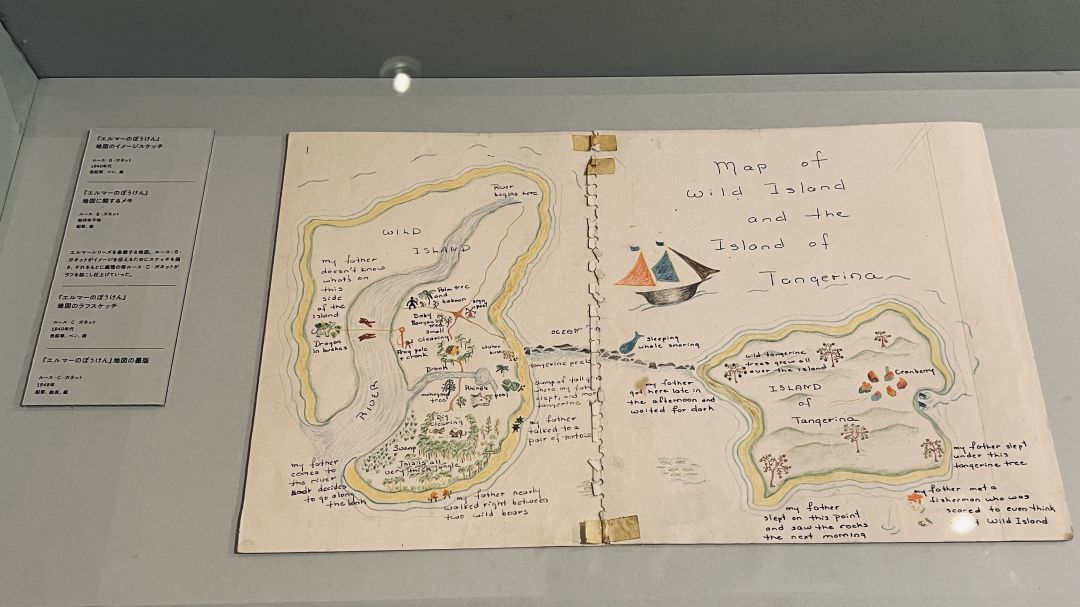 『エルマーのぼうけん』
地図のイメージスケッチ
ルース・S・ガネット
1940年代
色鉛筆、ペン、紙
『エルマーのぼうけん』
地図に関するメモ
ルース・S・ガネット
制作年不明
鉛筆、紙
エルマーシリーズを象徴する地図。ルース・S・
ガネットがイメージを伝えるためにスケッチを描
き、それをもとに義理の母ルース・C・ガネットが
ラフを起こし仕上げていった。
『エルマーのぼうけん』
地図のラフスケッチ
ルース・C・ガネット
1940年代
色鉛筆、ペン、紙
『エルマーのぼうけん』地図の墨版
ルース・C・ガネット
1948年
1
River
begins here
WILD
ISLAND
my father
doesn't know
what's on
this
side
of the
island
Palm tree
and
baboon
sign
post
Baby
Banyan
tree
small
clearing
Dragon
in bushes
crank
Brook
RIVER
mahogany
tree
Rhino's
pool
Big
clearing
Swamp
This is all
very thick jungle
my father
talked to a
pair of tortois
my father
comes to
the river
and decides
to go along
the bank
my father nearly
walked right between
two wild boars
Map of
Wild Island
and the
Island of
Tangerina
OCEAN
sleeping
whale snoring
my father
got here late in
the afternoon and
waited for dark
wild tangerine
trees grew all
over the island
Cranberry
ISLAND
of
Tangerina
my father slept
under this
tangerine tree
my father met a
fisherman who was
scared to even think
Wild Island
my father
slept on this point
and saw the rocks
the next morning